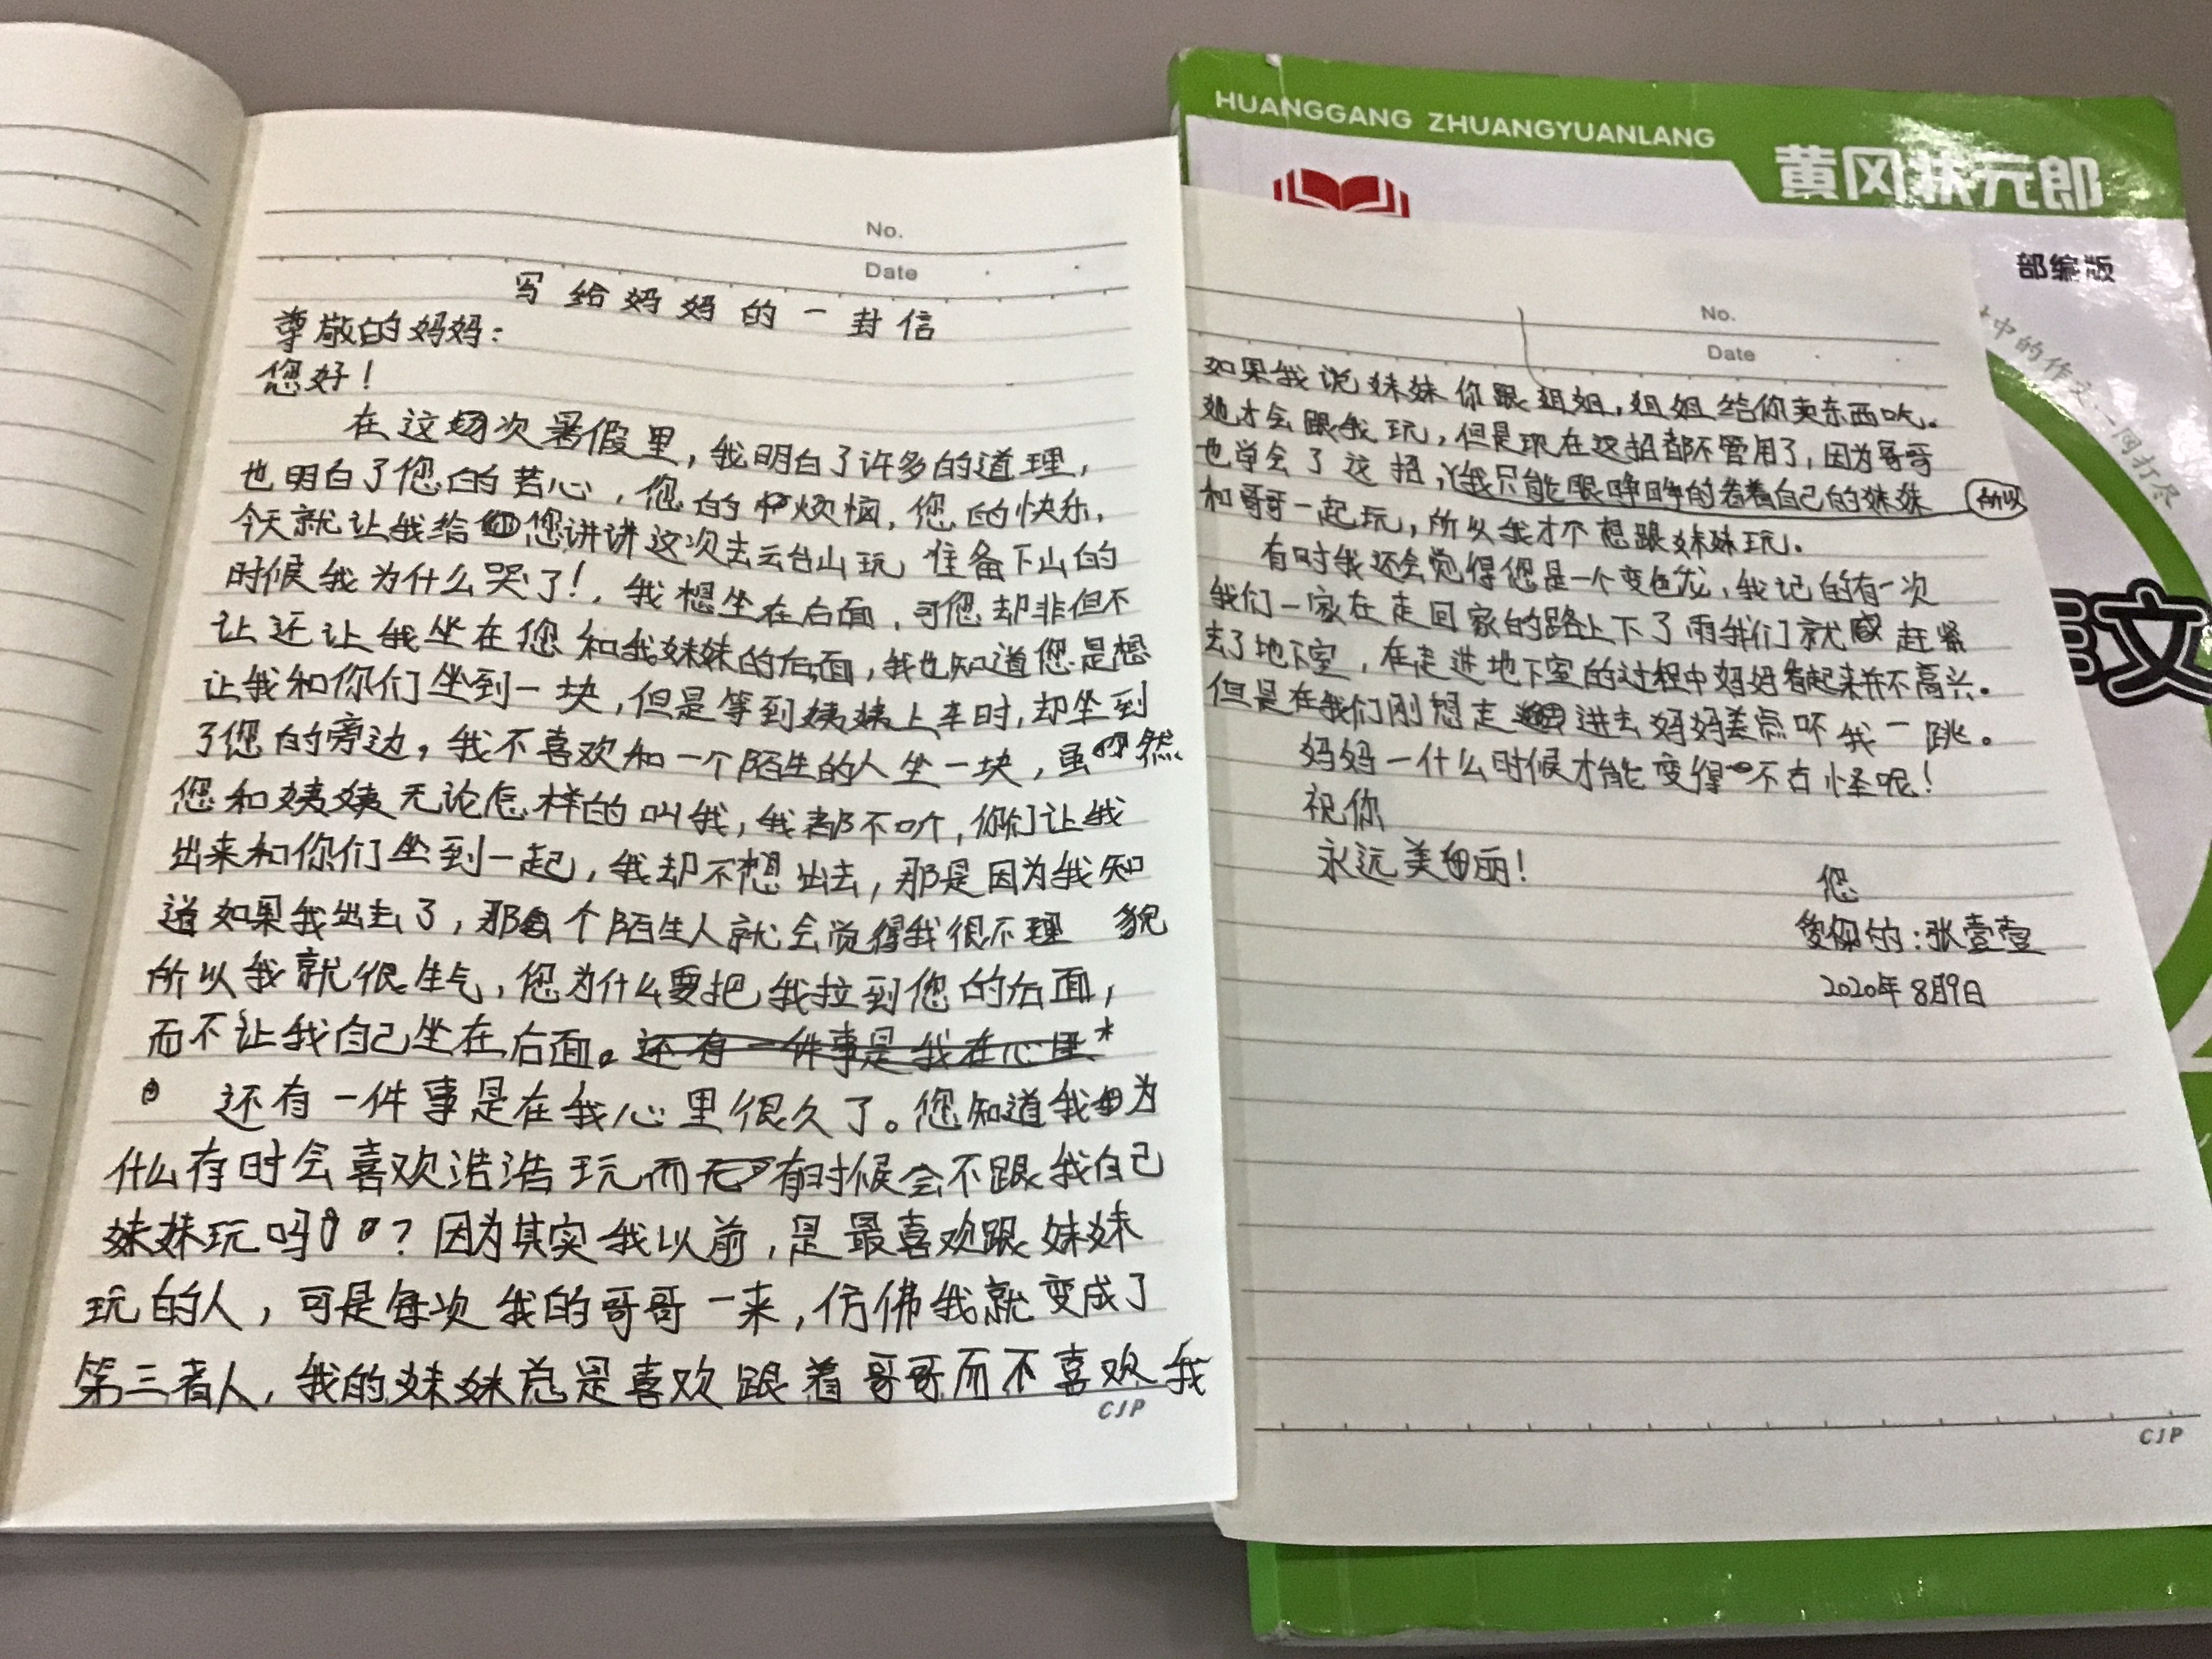 No.
Date
写给妈妈的一封信
尊敬的妈妈：
您好！
在这次暑假里，我明白了许多的道理，
也明白了您的苦心，您的烦恼，您的快乐，
今天就让我给您讲讲这次去云台山玩 准备下山的
时候我为什么哭了！，我想坐在后面，可您却非但不
让还让我坐在您和我妹妹的后面，我也知道您是想
让我和你们坐到一块，但是等到姨姨上车时，却坐到
了您的旁边，我不喜欢和一个陌生的人坐一块，虽然
您和姨姨无论怎样的叫我，我都不听，你们让我
出来和你们坐到一起，我却不想出去，那是因为我知
道如果我出去了，那个陌生人就会觉得我很不理貌
所以我就很生气，您为什么要把我拉到您的后面，
而不让我自己坐在后面。还有一件事是我在心里*
还有一件事是在我心里很久了。您知道我为
什么有时会喜欢浩浩玩而有时候会不跟我自己
妹妹玩吗？因为其实我以前，是最喜欢跟妹妹
玩的人，可是每次我的哥哥一来，仿佛我就变成了
第三者人，我的妹妹总是喜欢跟着哥哥而不喜欢我
CJP
HUANGGANG ZHUANGYUANLANG
黄冈状元郎
部编版
中的作文一网打尽
作文
No.
Date
如果我说妹妹你跟姐姐，姐姐给你卖东西吃。
她才会跟我玩，但是现在这招都不管用了，因为哥哥
也学会了这招，我只能眼睁睁的看着自己的妹妹 所以
和哥哥一起玩，所以我才不想跟妹妹玩。
有时我还会觉得您是一个变色龙，我记的有一次
我们一家在走回家的路上下了雨我们就赶紧
去了地下室，在走进地下室的过程中妈妈看起来并不高兴。
但是在我们刚想走进去妈妈差点吓我一跳。
妈妈一什么时候才能变得不古怪呢！
祝你
永远美丽！
您
爱你的：张壹壹
2020年8月9日
CJP